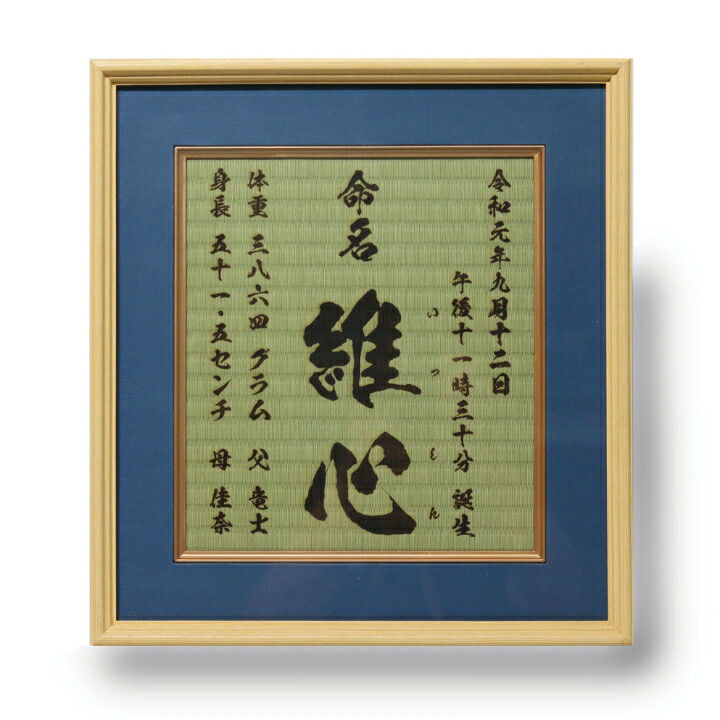 令和元年九月十二日
午後十一時三十分 誕生
命名 維心
いっしん
体重 三八六四 グラム 父 竜士
身長 五十一・五センチ 母 佳奈